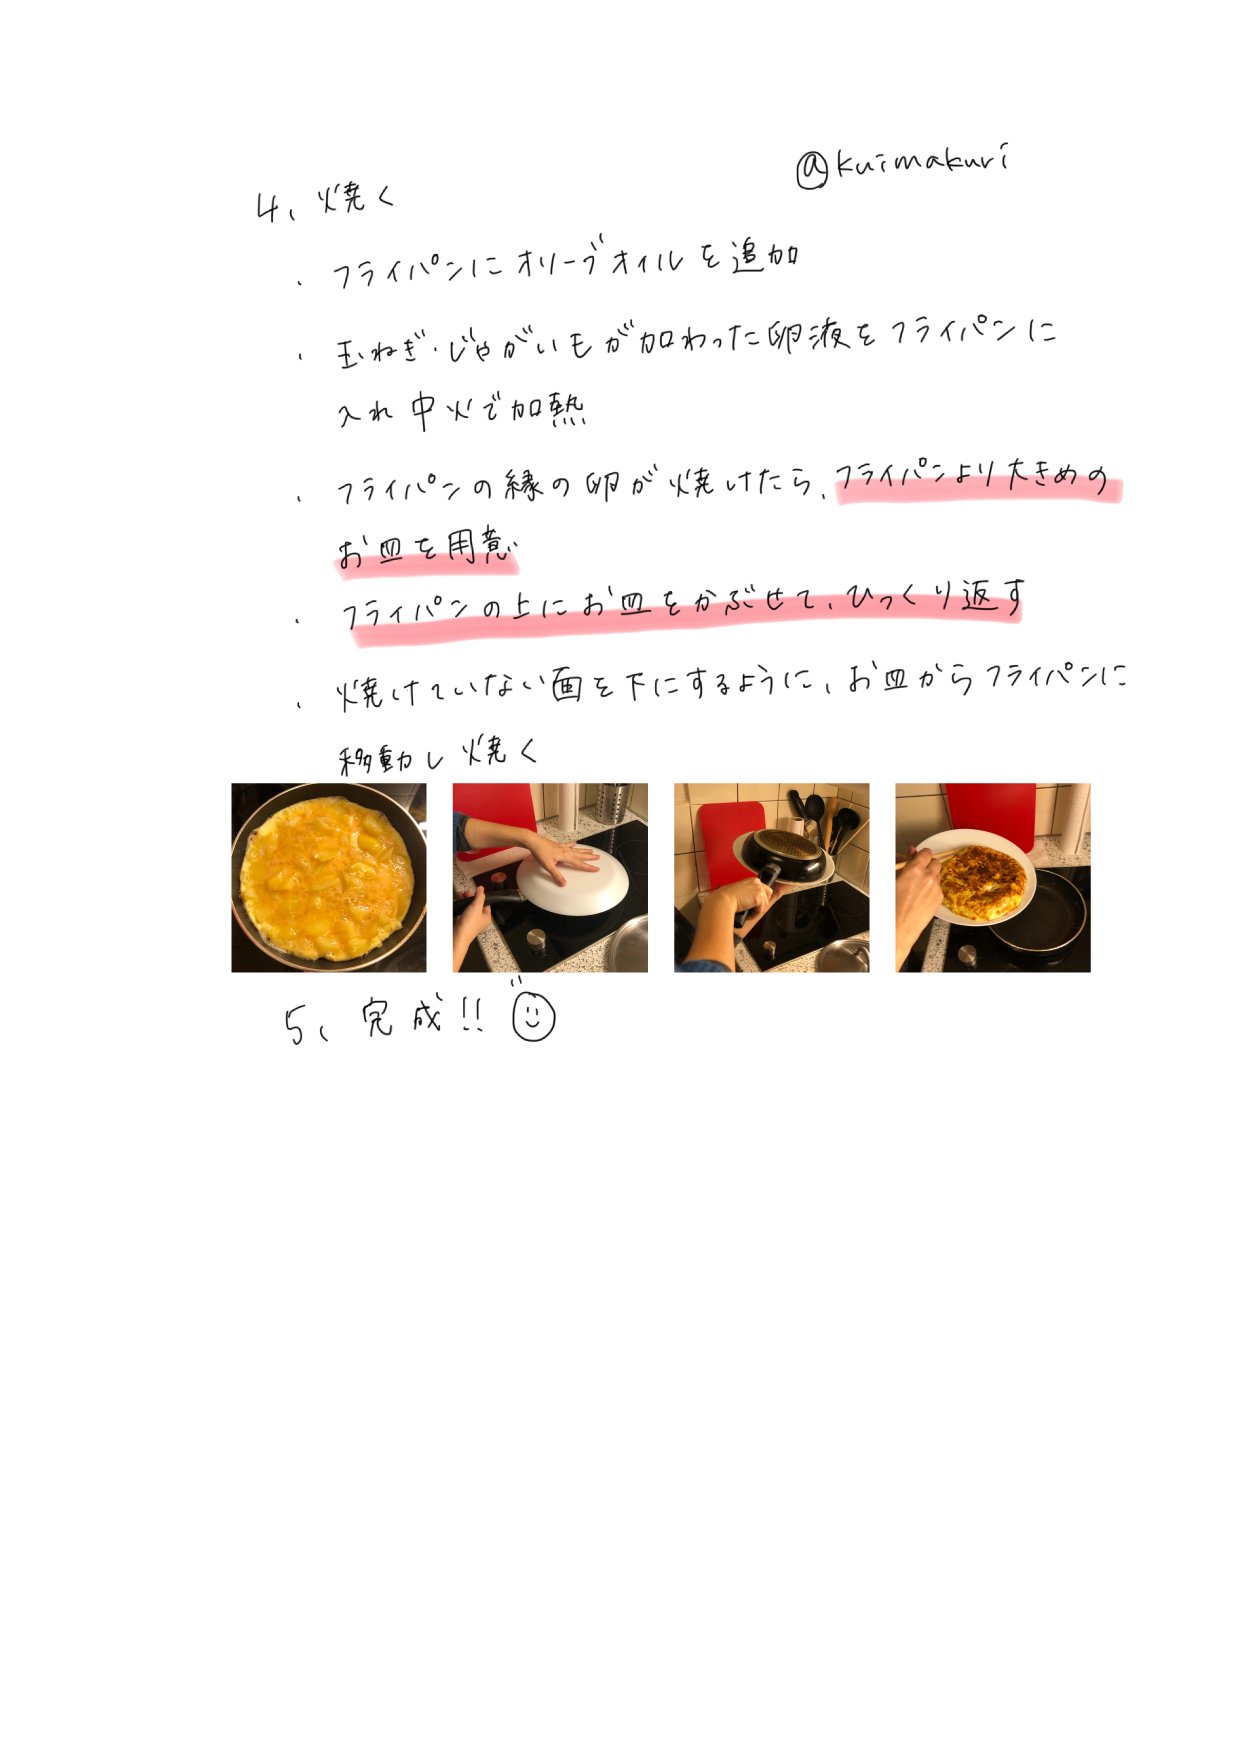 @kuimakuri
4、焼く
・フライパンにオリーブオイルを追加
・玉ねぎ・じゃがいもが加わった卵液をフライパンに
入れ中火で加熱
・フライパンの縁の卵が焼けたら、フライパンより大きめの
お皿を用意
・フライパンの上にお皿をかぶせて、ひっくり返す
・焼けていない面を下にするように、お皿からフライパンに
移動し焼く
5、完成!!